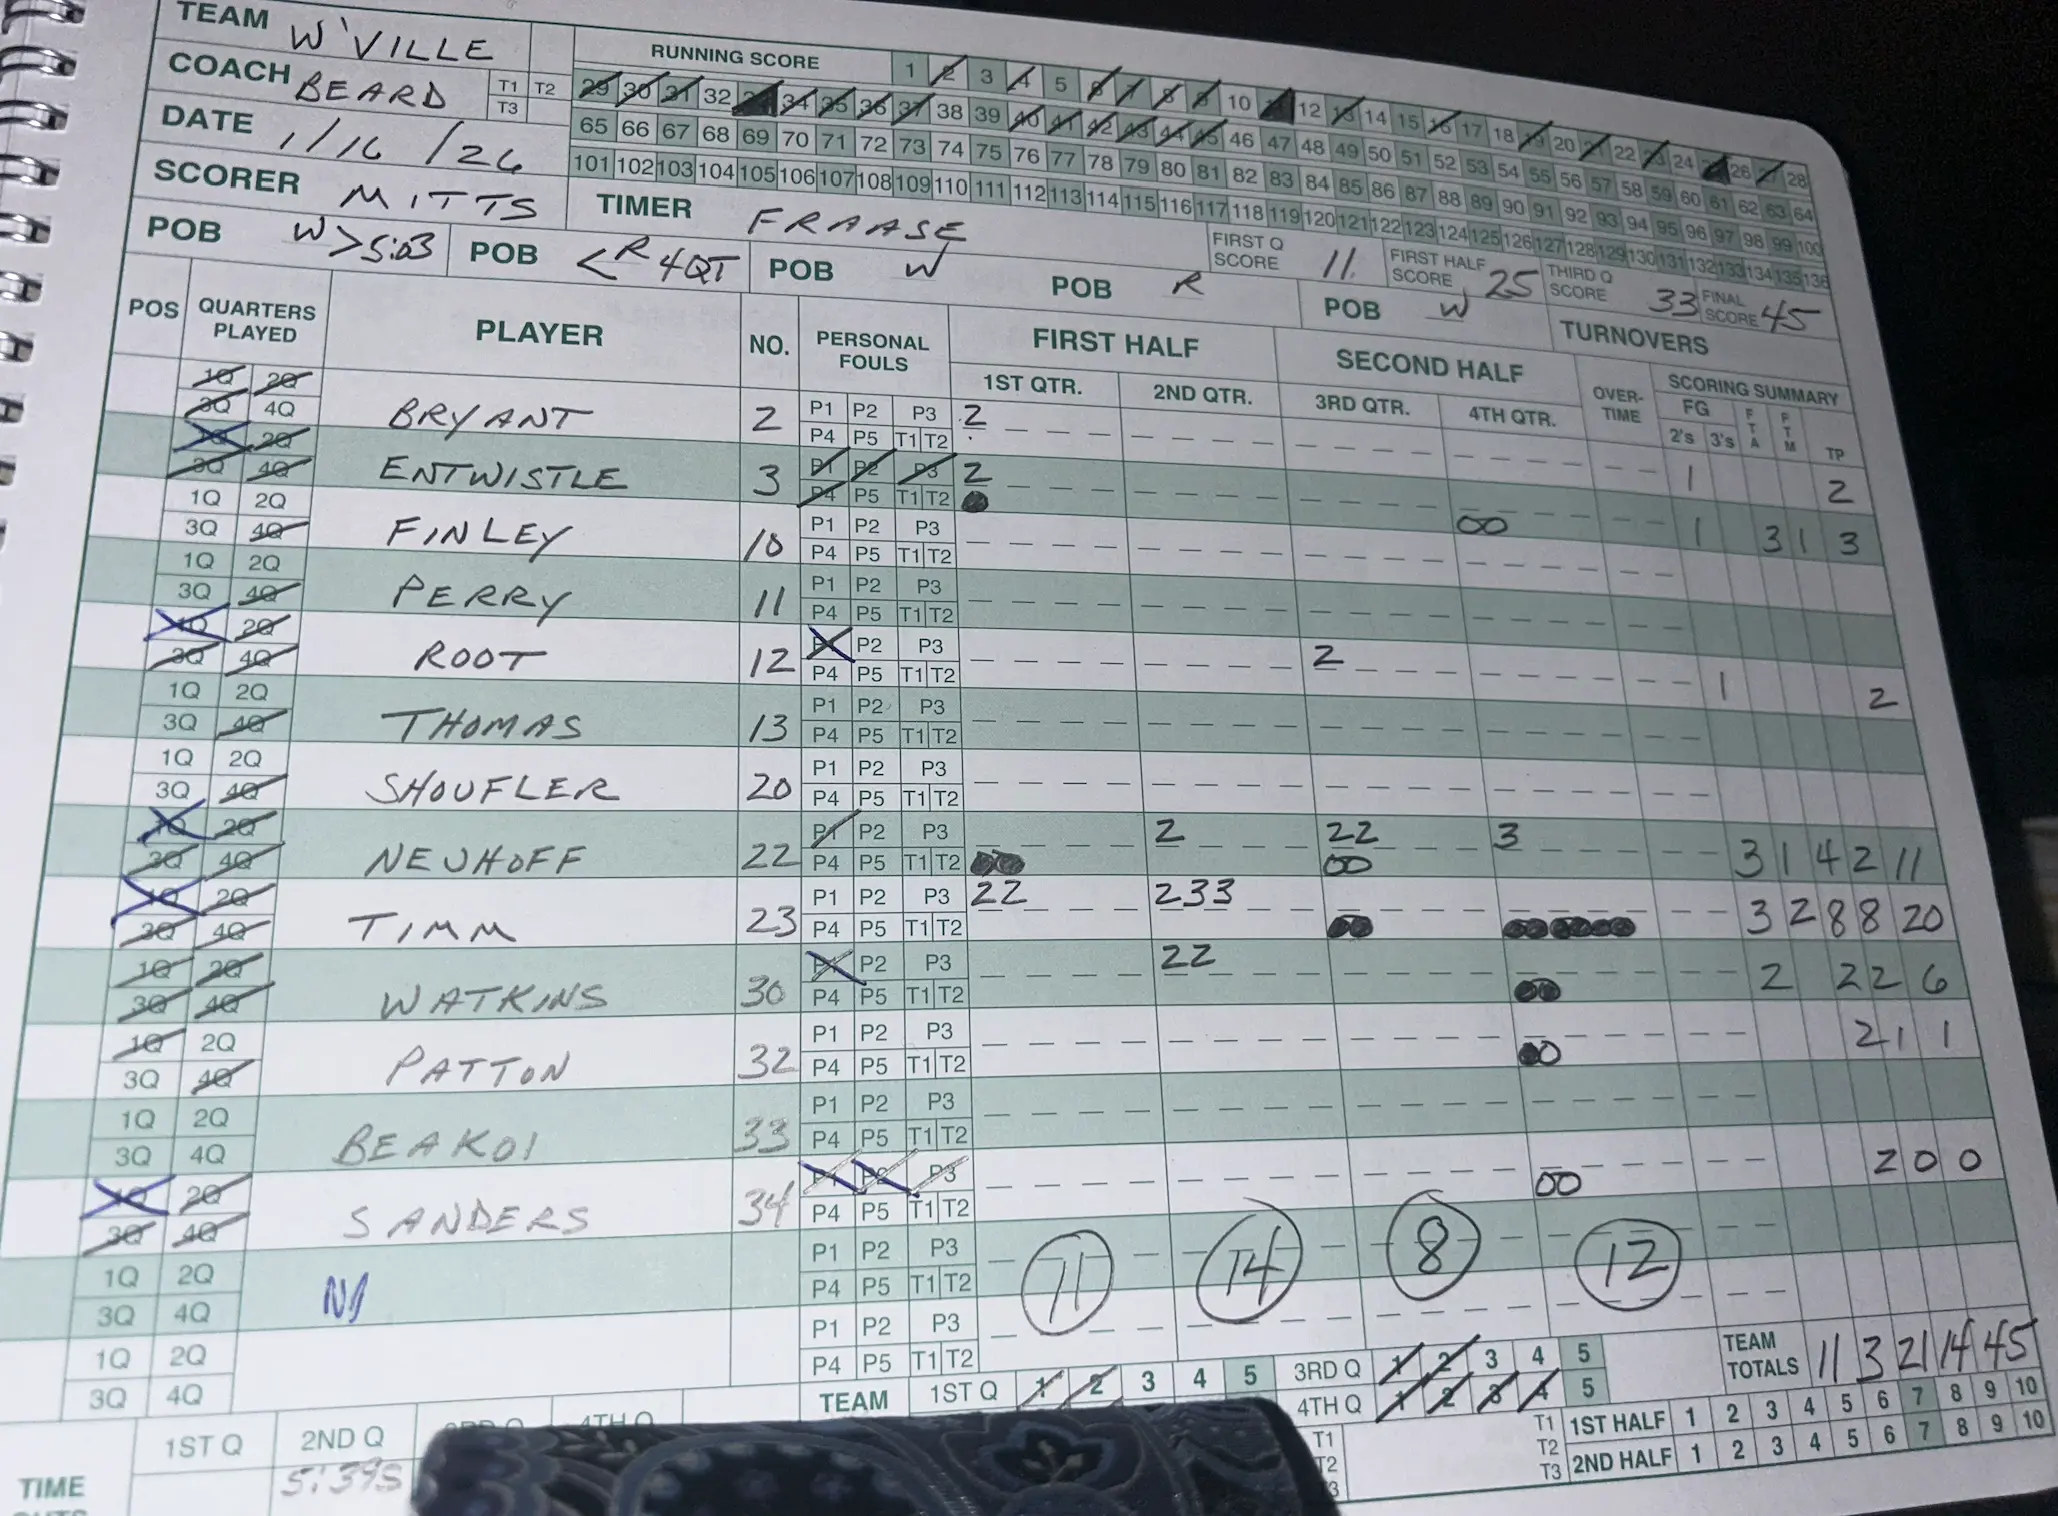 TEAM W'VILLE
RUNNING SCORE 1 2 3 4 5 6 7 8 9 10 11 12 13 14 15 16 17 18 19 20 21 22 23 24 25 26 27 28
COACH BEARD T1 T2 T3
29 30 31 32 33 34 35 36 37 38 39 40 41 42 43 44 45 46 47 48 49 50 51 52 53 54 55 56 57 58 59 60 61 62 63 64
65 66 67 68 69 70 71 72 73 74 75 76 77 78 79 80 81 82 83 84 85 86 87 88 89 90 91 92 93 94 95 96 97 98 99 100
101 102 103 104 105 106 107 108 109 110 111 112 113 114 115 116 117 118 119 120 121 122 123 124 125 126 127 128 129 130 131 132 133 134 135 136
DATE 1/16/26
SCORER MITTS TIMER FRAASE
FIRST Q SCORE 11. FIRST HALF SCORE 25 THIRD Q SCORE 33 FINAL SCORE 45
POB W>5:03 POB <R 4QT POB W POB R POB W TURNOVERS
POS QUARTERS PLAYED PLAYER NO. PERSONAL FOULS FIRST HALF SECOND HALF OVER-TIME SCORING SUMMARY
1ST QTR. 2ND QTR. 3RD QTR. 4TH QTR. FG FTA FTM TP
2's 3's
1Q 2Q P1 P2 P3 2
3Q 4Q BRYANT 2 P4 P5 T1 T2 1 2
1Q 2Q P1 P2 P3 2
3Q 4Q ENTWISTLE 3 P4 P5 T1 T2 00 1 3 1 3
1Q 2Q P1 P2 P3
3Q 4Q FINLEY 10 P4 P5 T1 T2
1Q 2Q P1 P2 P3
3Q 4Q PERRY 11 P4 P5 T1 T2
1Q 2Q P1 P2 P3 2
3Q 4Q ROOT 12 P4 P5 T1 T2 1 2
1Q 2Q P1 P2 P3
3Q 4Q THOMAS 13 P4 P5 T1 T2
1Q 2Q P1 P2 P3
3Q 4Q SHOUFLER 20 P4 P5 T1 T2
1Q 2Q P1 P2 P3 2 22 3
3Q 4Q NEUHOFF 22 P4 P5 T1 T2 00 3 1 4 2 11
1Q 2Q P1 P2 P3 22 233
3Q 4Q TIMM 23 P4 P5 T1 T2 3 2 8 8 20
1Q 2Q P1 P2 P3 22
3Q 4Q WATKINS 30 P4 P5 T1 T2 2 2 2 6
1Q 2Q P1 P2 P3
3Q 4Q PATTON 32 P4 P5 T1 T2 0 2 1 1
1Q 2Q P1 P2 P3
3Q 4Q BEAKOI 33 P4 P5 T1 T2
1Q 2Q P1 P2 P3
3Q 4Q SANDERS 34 P4 P5 T1 T2 00 2 0 0
1Q 2Q P1 P2 P3
3Q 4Q P4 P5 T1 T2 11 14 8 12
1Q 2Q P1 P2 P3
3Q 4Q P4 P5 T1 T2
TEAM TOTALS 11 3 21 14 45
TEAM 1ST Q 1 2 3 4 5 3RD Q 1 2 3 4 5
4TH Q 1 2 3 4 5
T1 1ST HALF 1 2 3 4 5 6 7 8 9 10
T2 T3 2ND HALF 1 2 3 4 5 6 7 8 9 10
T1 T2 T3
TIME 1ST Q 2ND Q 4TH Q
5:39S